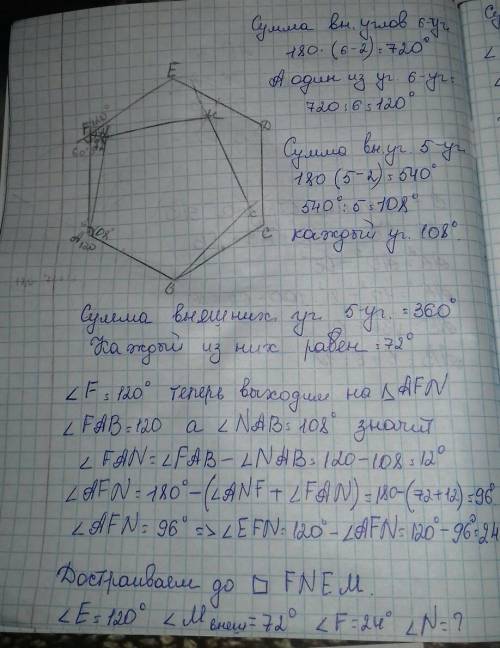 Сумма вн. углов 6-уг
180·(6-2)=720°
А один из уг. 6-уг=
720:6=120°
Сумма вн. уг. 5-уг
180(5-2)=540°
540°:5=108°
каждый уг. 108°.
E
D
C
B
A
120
108
F
Сумма внешних уг. 5-уг.=360°
Каждый из них равен=72°
∠F=120° теперь выходим на △AFN
∠FAB=120 а ∠NAB=108° значит
∠FAN=∠FAB-∠NAB=120-108=12°
∠AFN=180°-(∠ANF+∠FAN)=180-(72+12)=96°
∠AFN=96° => ∠EFN=120°-∠AFN=120°-96°=24
Достраиваем до □ FNEM.
∠E=120° ∠M внеш=72° ∠F=24° ∠N=?